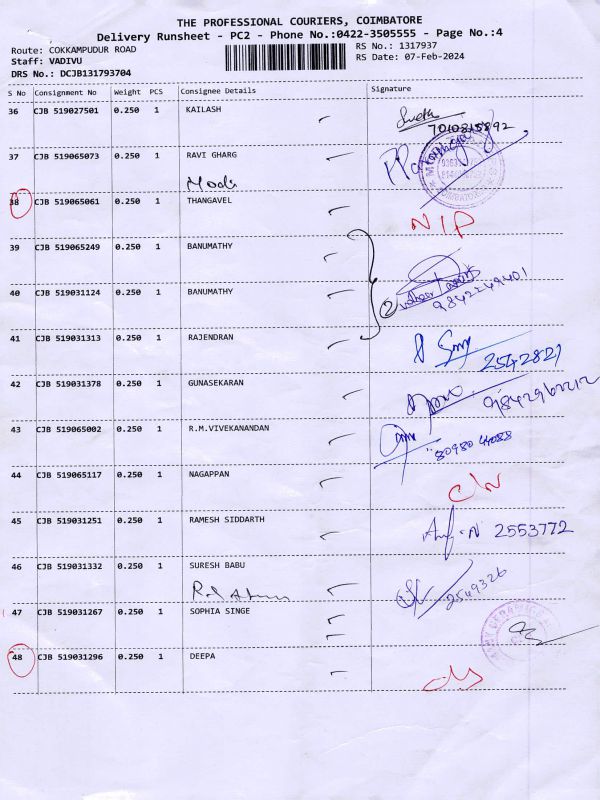 THE PROFESSIONAL COURIERS, COIMBATORE
Delivery Runsheet - PC2 - Phone No.:0422-3505555 - Page No.:4
Route: COKKAMPUDUR ROAD RS No.: 1317937
Staff: VADIVU RS Date: 07-Feb-2024
DRS No.: DCJB131793704
S No Consignment No Weight PCS Consignee Details Signature
36 CJB 519027501 0.250 1 KAILASH
7010815892
37 CJB 519065073 0.250 1 RAVI GHARG
Modi
38 CJB 519065061 0.250 1 THANGAVEL
N/P
39 CJB 519065249 0.250 1 BANUMATHY
40 CJB 519031124 0.250 1 BANUMATHY
2 9842249401
41 CJB 519031313 0.250 1 RAJENDRAN
2542821
42 CJB 519031378 0.250 1 GUNASEKARAN
43 CJB 519065002 0.250 1 R.M.VIVEKANANDAN
80980 44088
44 CJB 519065117 0.250 1 NAGAPPAN
45 CJB 519031251 0.250 1 RAMESH SIDDARTH
2553772
46 CJB 519031332 0.250 1 SURESH BABU
2549326
47 CJB 519031267 0.250 1 SOPHIA SINGE
48 CJB 519031296 0.250 1 DEEPA